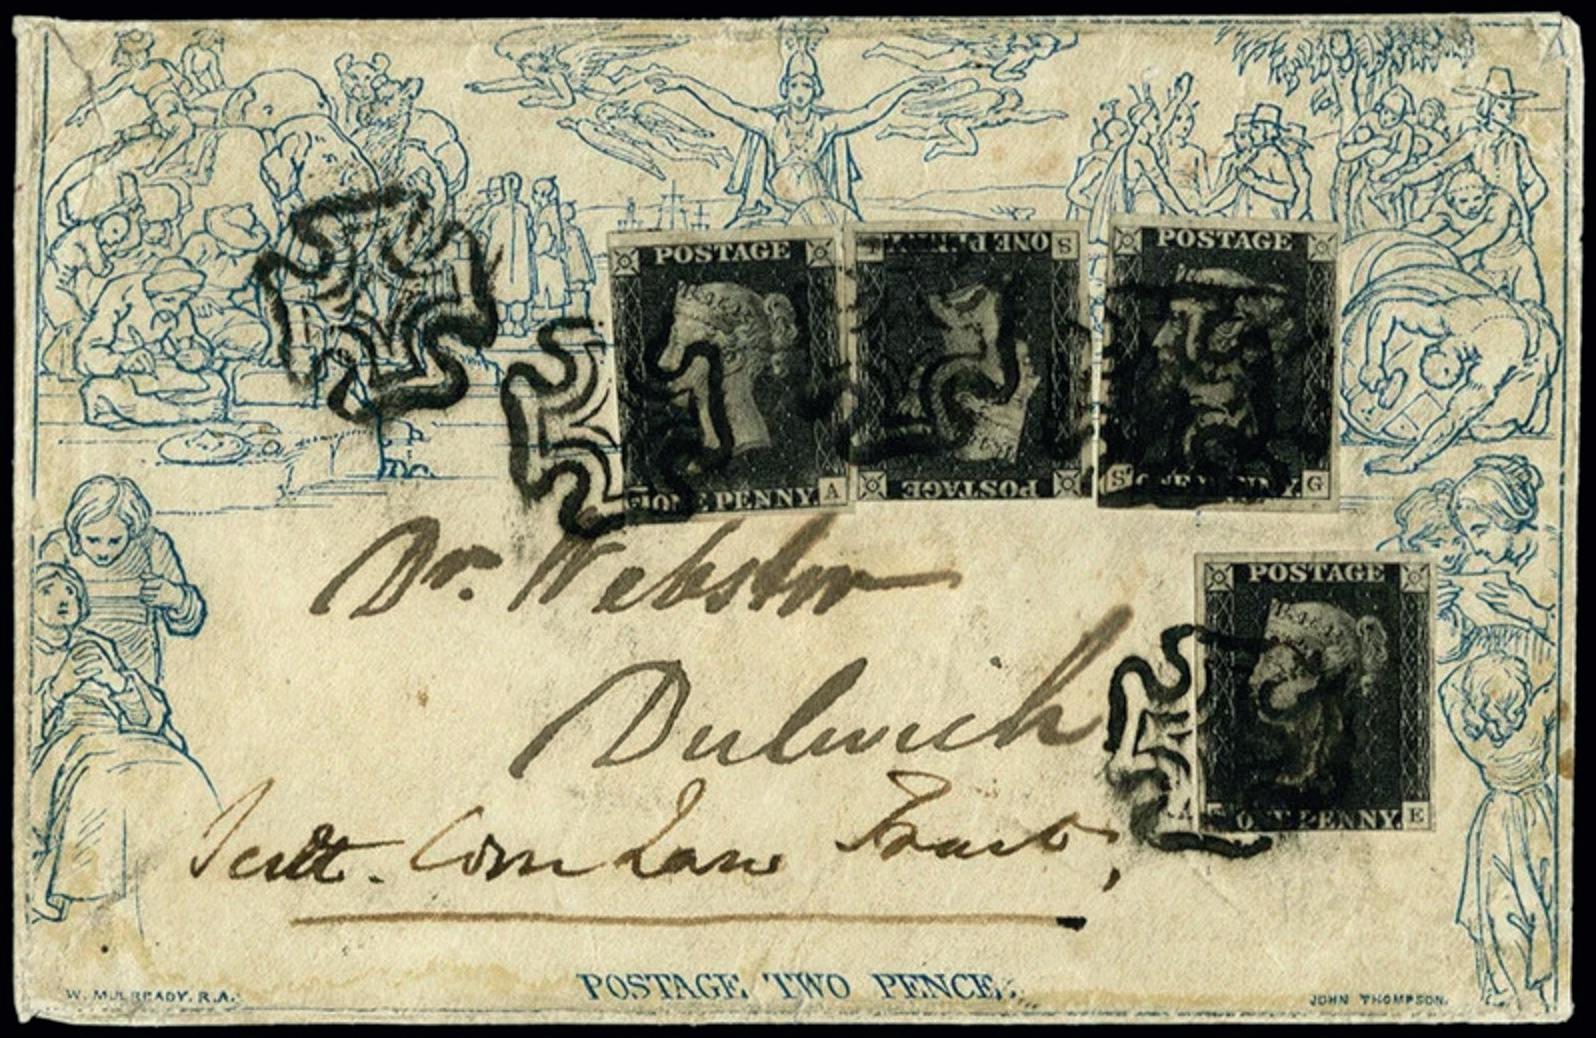 POSTAGE
ONE PENNY
S
POSTAGE
A
ONE PENNY.
POSTAGE
S
ONE PENNY.
G
Dr. Webster
Dulwich
POSTAGE
ONE PENNY.
E
Corn Law
POSTAGE TWO PENCE.
W. MULREADY. R.A.
JOHN THOMPSON.